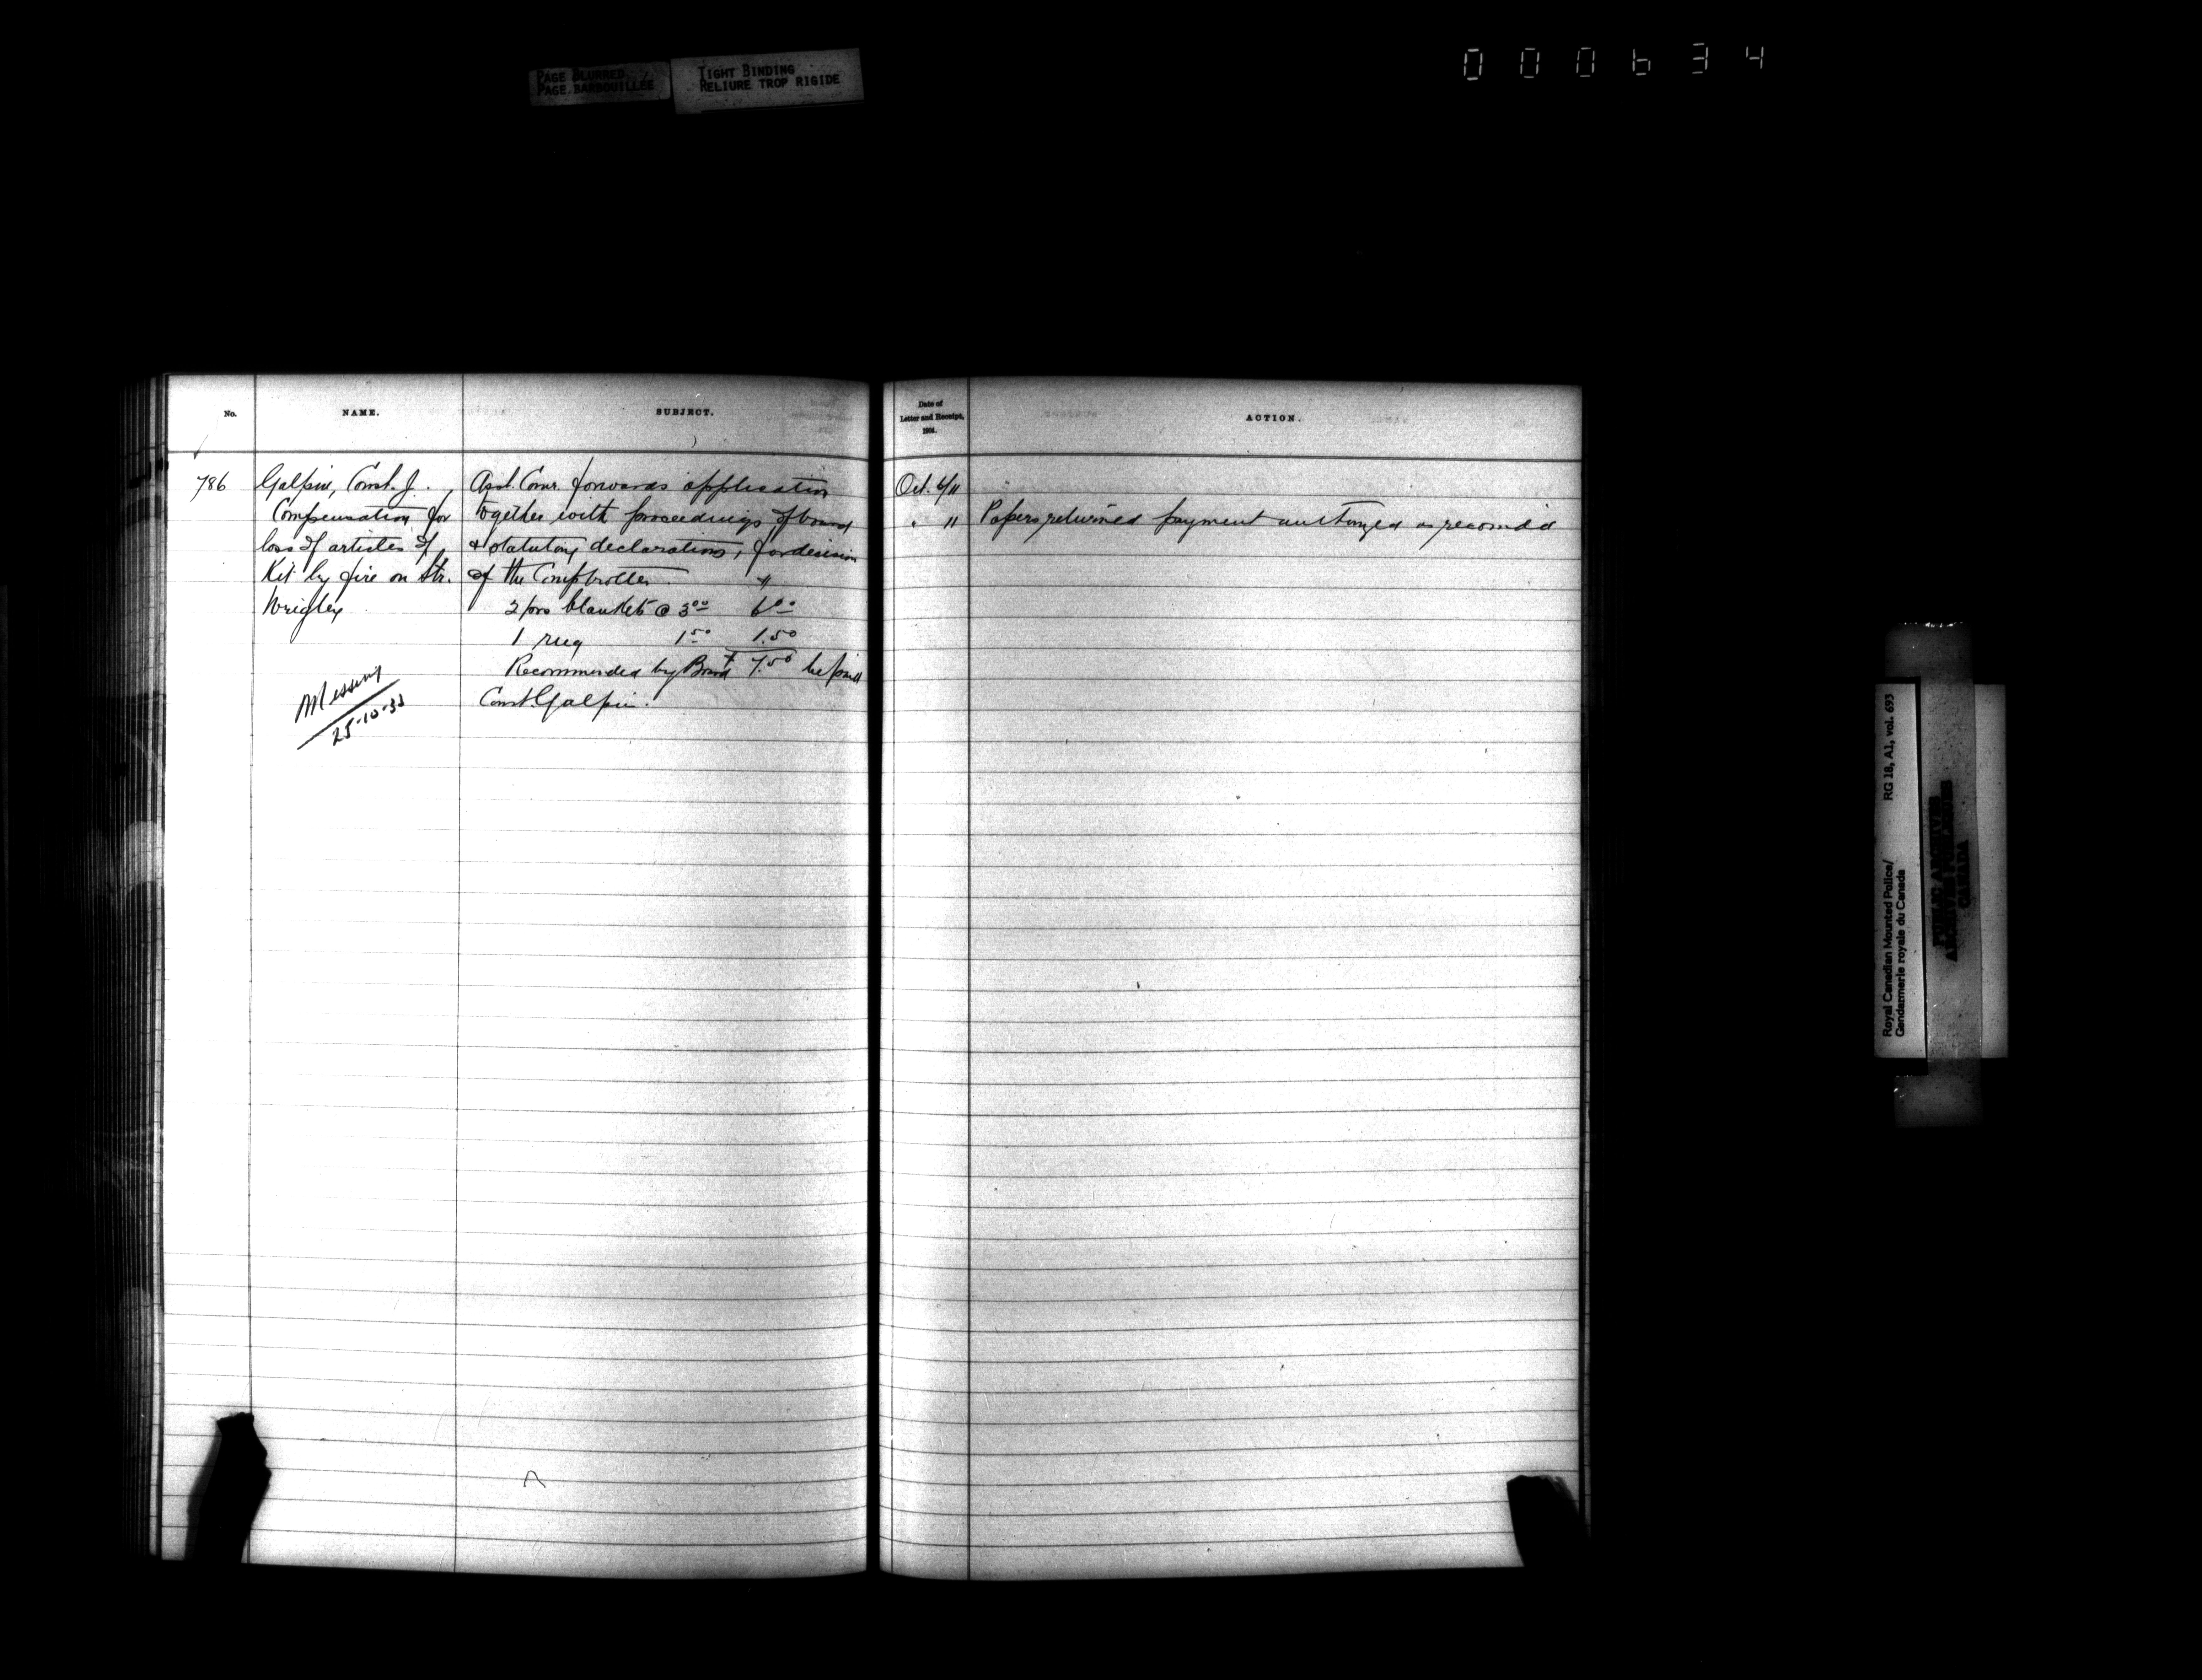 PAGE BLURRED
PAGE BARBOUILLEE
TIGHT BINDING
RELIURE TROP RIGIDE
000634
No.
NAME.
SUBJECT.
Date of
Letter and Receipt,
190
ACTION.
786
Galpin, Const. J.
Compensation for
loss of articles of
Kit by fire on Str.
Wrigley
Asst. Comr. forwards application
together with proceedings of board
& statutory declarations, for decision
of the Comptroller.
2 prs blankets @ 3.00 6.00
1 rug 1.50 1.50
Recommended by Board $ 7.50 be paid
Const. Galpin.
Missing
25-10-33
Oct. 6/11
" 11
Papers returned payment authorized as recomd'd
Royal Canadian Mounted Police/
Gendarmerie royale du Canada
RG 18, A1, vol. 693
PUBLIC ARCHIVES
ARCHIVES PUBLIQUES
CANADA